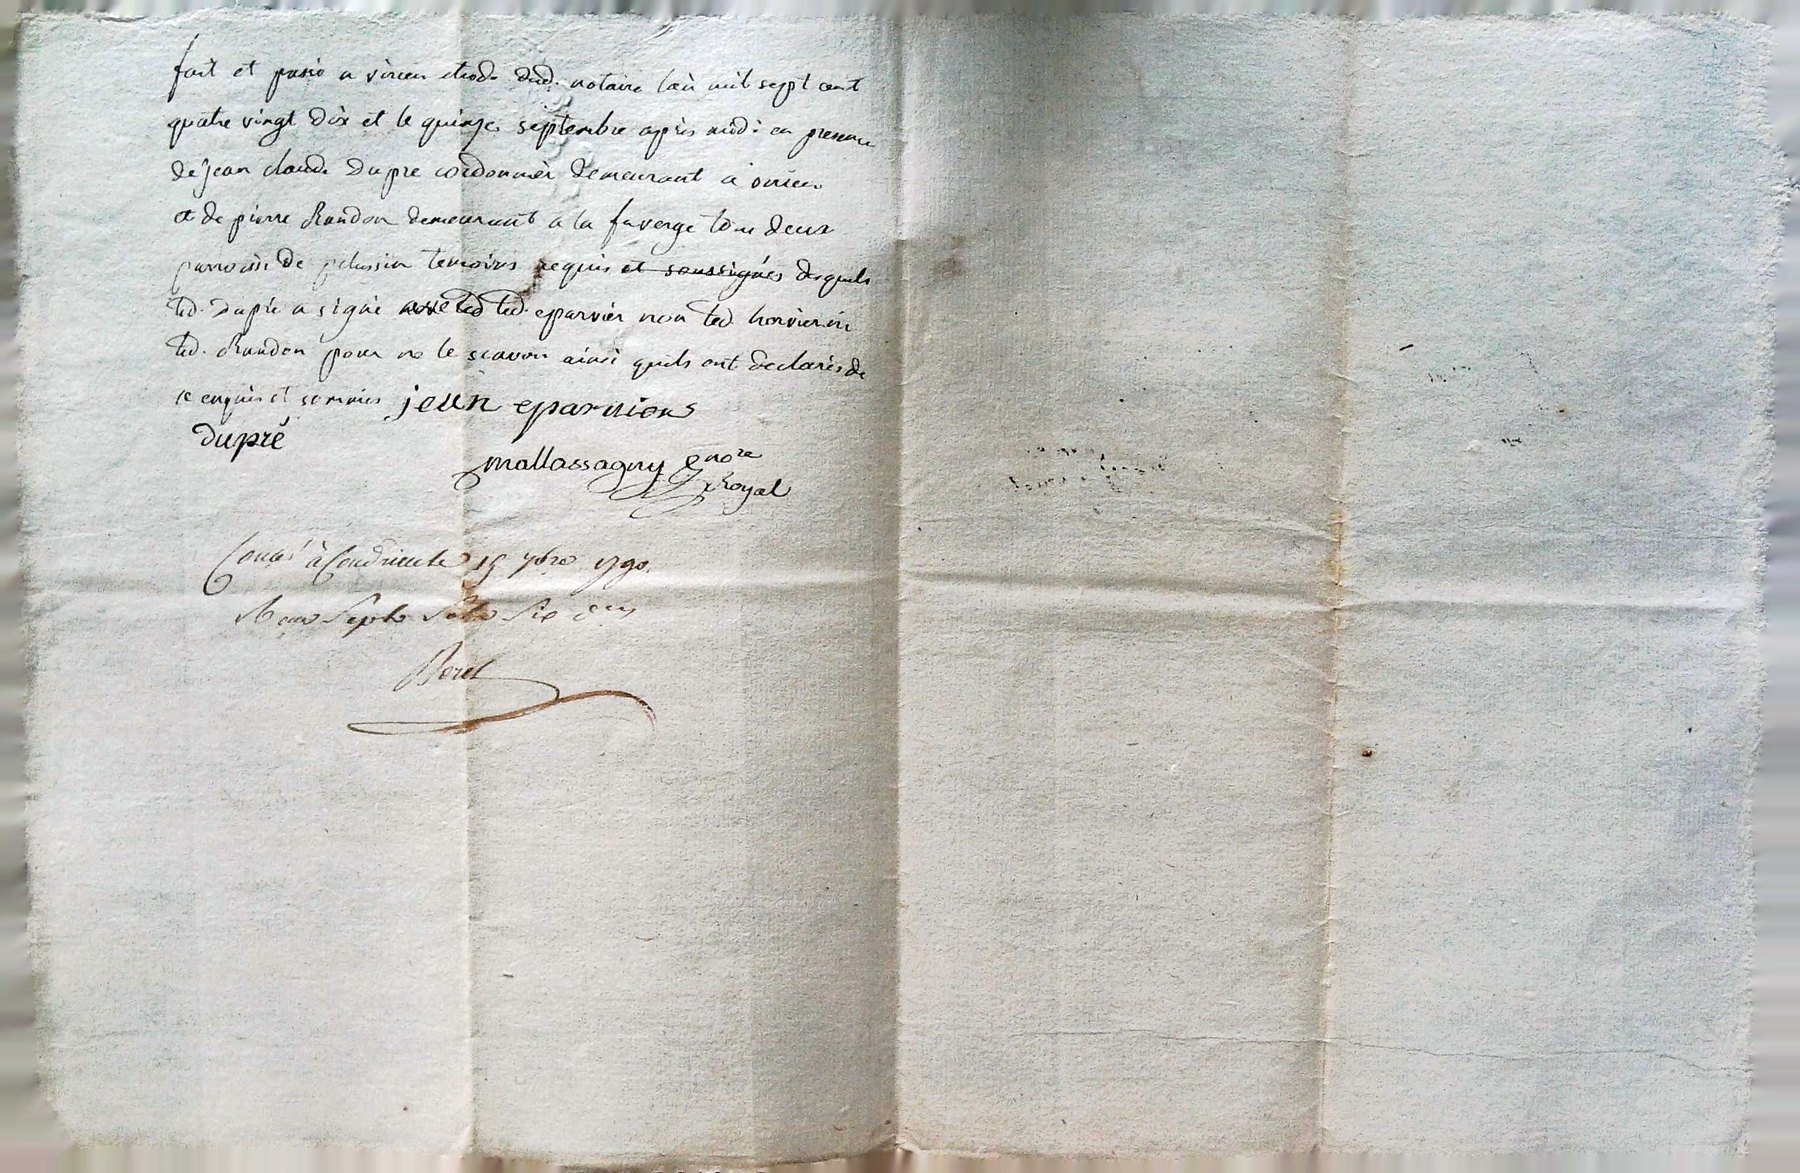 fait et passé a virieu etude dud. notaire l'an mil sept cent
quatre vingt dix et le quinze septembre après midi en presence
de jean claude dupre cordonnier demeurant a virieu
et de pierre Chaudon demeurant a la faverge tous deux
parroisse de pelussin temoins requis et soussignés desquels
led. dupré a signé avec led. eparvier non led. horvier ni
led. Chaudon pour ne le scavoir ainsi quils ont declarés de
ce enquis et sommés jean eparvions
dupré
mallassagny nore
Royal
à Condrieu le 15 7bre 1790.
Borel